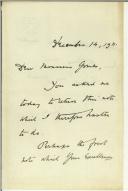 December 14, 191
Dear Monsieur Gomes,
You asked me
today to return this note
which I therefore hasten
to do.
Perhaps the first
note which Your Excellency